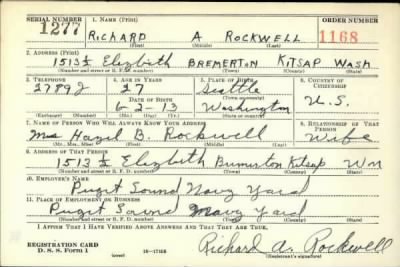 SERIAL NUMBER 1. NAME (Print) ORDER NUMBER
1277 RICHARD A ROCKWELL 1168
(First) (Middle) (Last)
2. ADDRESS (Print)
1513½ Elizbith BREMERTON KITSAP WASH
(Number and street or R. F. D. number) (Town) (County) (State)
3. TELEPHONE 4. AGE IN YEARS 5. PLACE OF BIRTH 6. COUNTRY OF CITIZENSHIP
2789J 27 Seattle
DATE OF BIRTH (Town or county)
6-2-13 Washington U.S.
(Exchange) (Number) (Mo.) (Day) (Yr.) (State or country)
7. NAME OF PERSON WHO WILL ALWAYS KNOW YOUR ADDRESS 8. RELATIONSHIP OF THAT PERSON
Mrs Hazel B. Rockwell Wife
(Mr., Mrs., Miss) (First) (Middle) (Last)
9. ADDRESS OF THAT PERSON
1513½ Elizbith Bremerton Kitsap Wn
(Number and street or R. F. D. number) (Town) (County) (State)
10. EMPLOYER'S NAME
Puget Sound Navy Yard
11. PLACE OF EMPLOYMENT OR BUSINESS
Puget Sound Navy Yard
(Number and street or R. F. D. number) (Town) (County) (State)
I AFFIRM THAT I HAVE VERIFIED ABOVE ANSWERS AND THAT THEY ARE TRUE.
REGISTRATION CARD
D. S. S. Form 1 (over) 16—17105 Richard A. Rockwell
(Registrant's signature)